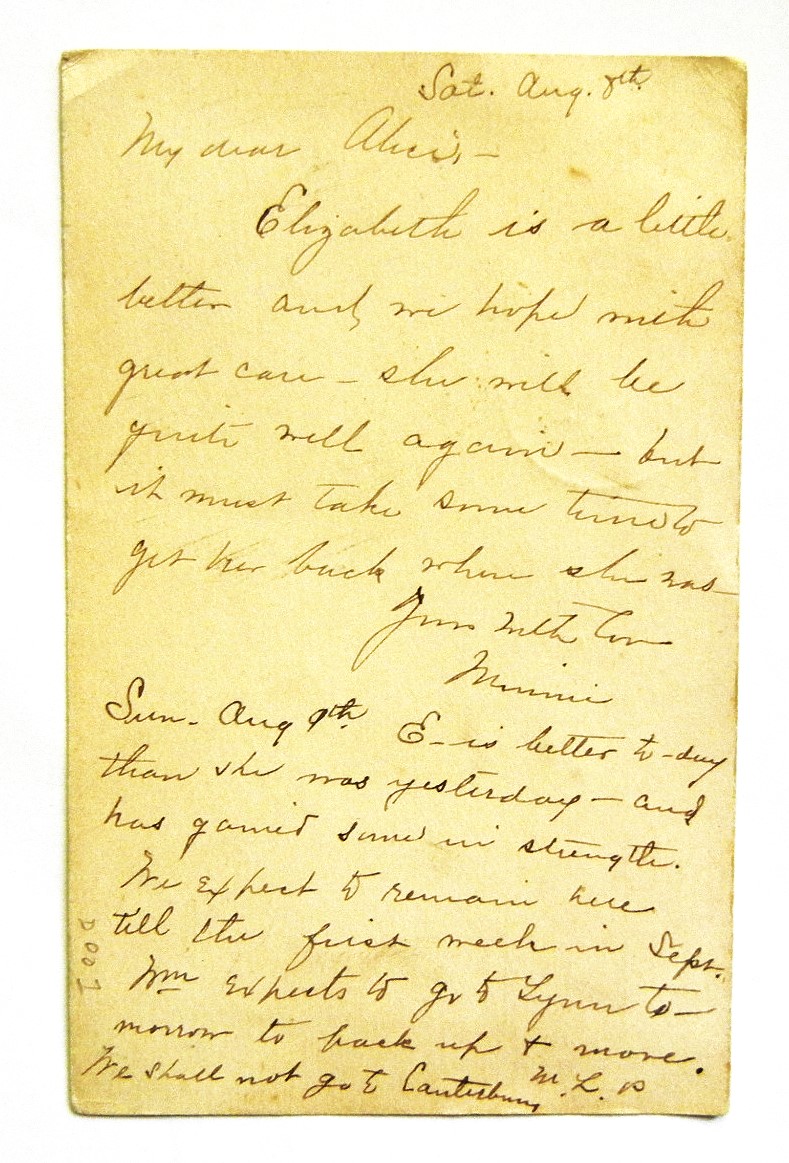 Sat. Aug. 8th.
My dear Alice, —
Elizabeth is a little
better and we hope with
great care — she will be
quite well again — but
it must take some time to
get her back where she was —
Yours with love
Minnie
Sun. Aug 9th. E— is better to-day
than she was yesterday — and
has gained some in strength.
We expect to remain here
till the first week in Sept.
Wm expects to go to Lynn to-
morrow to pack up & move.
We shall not go to Canterbury
M. L.